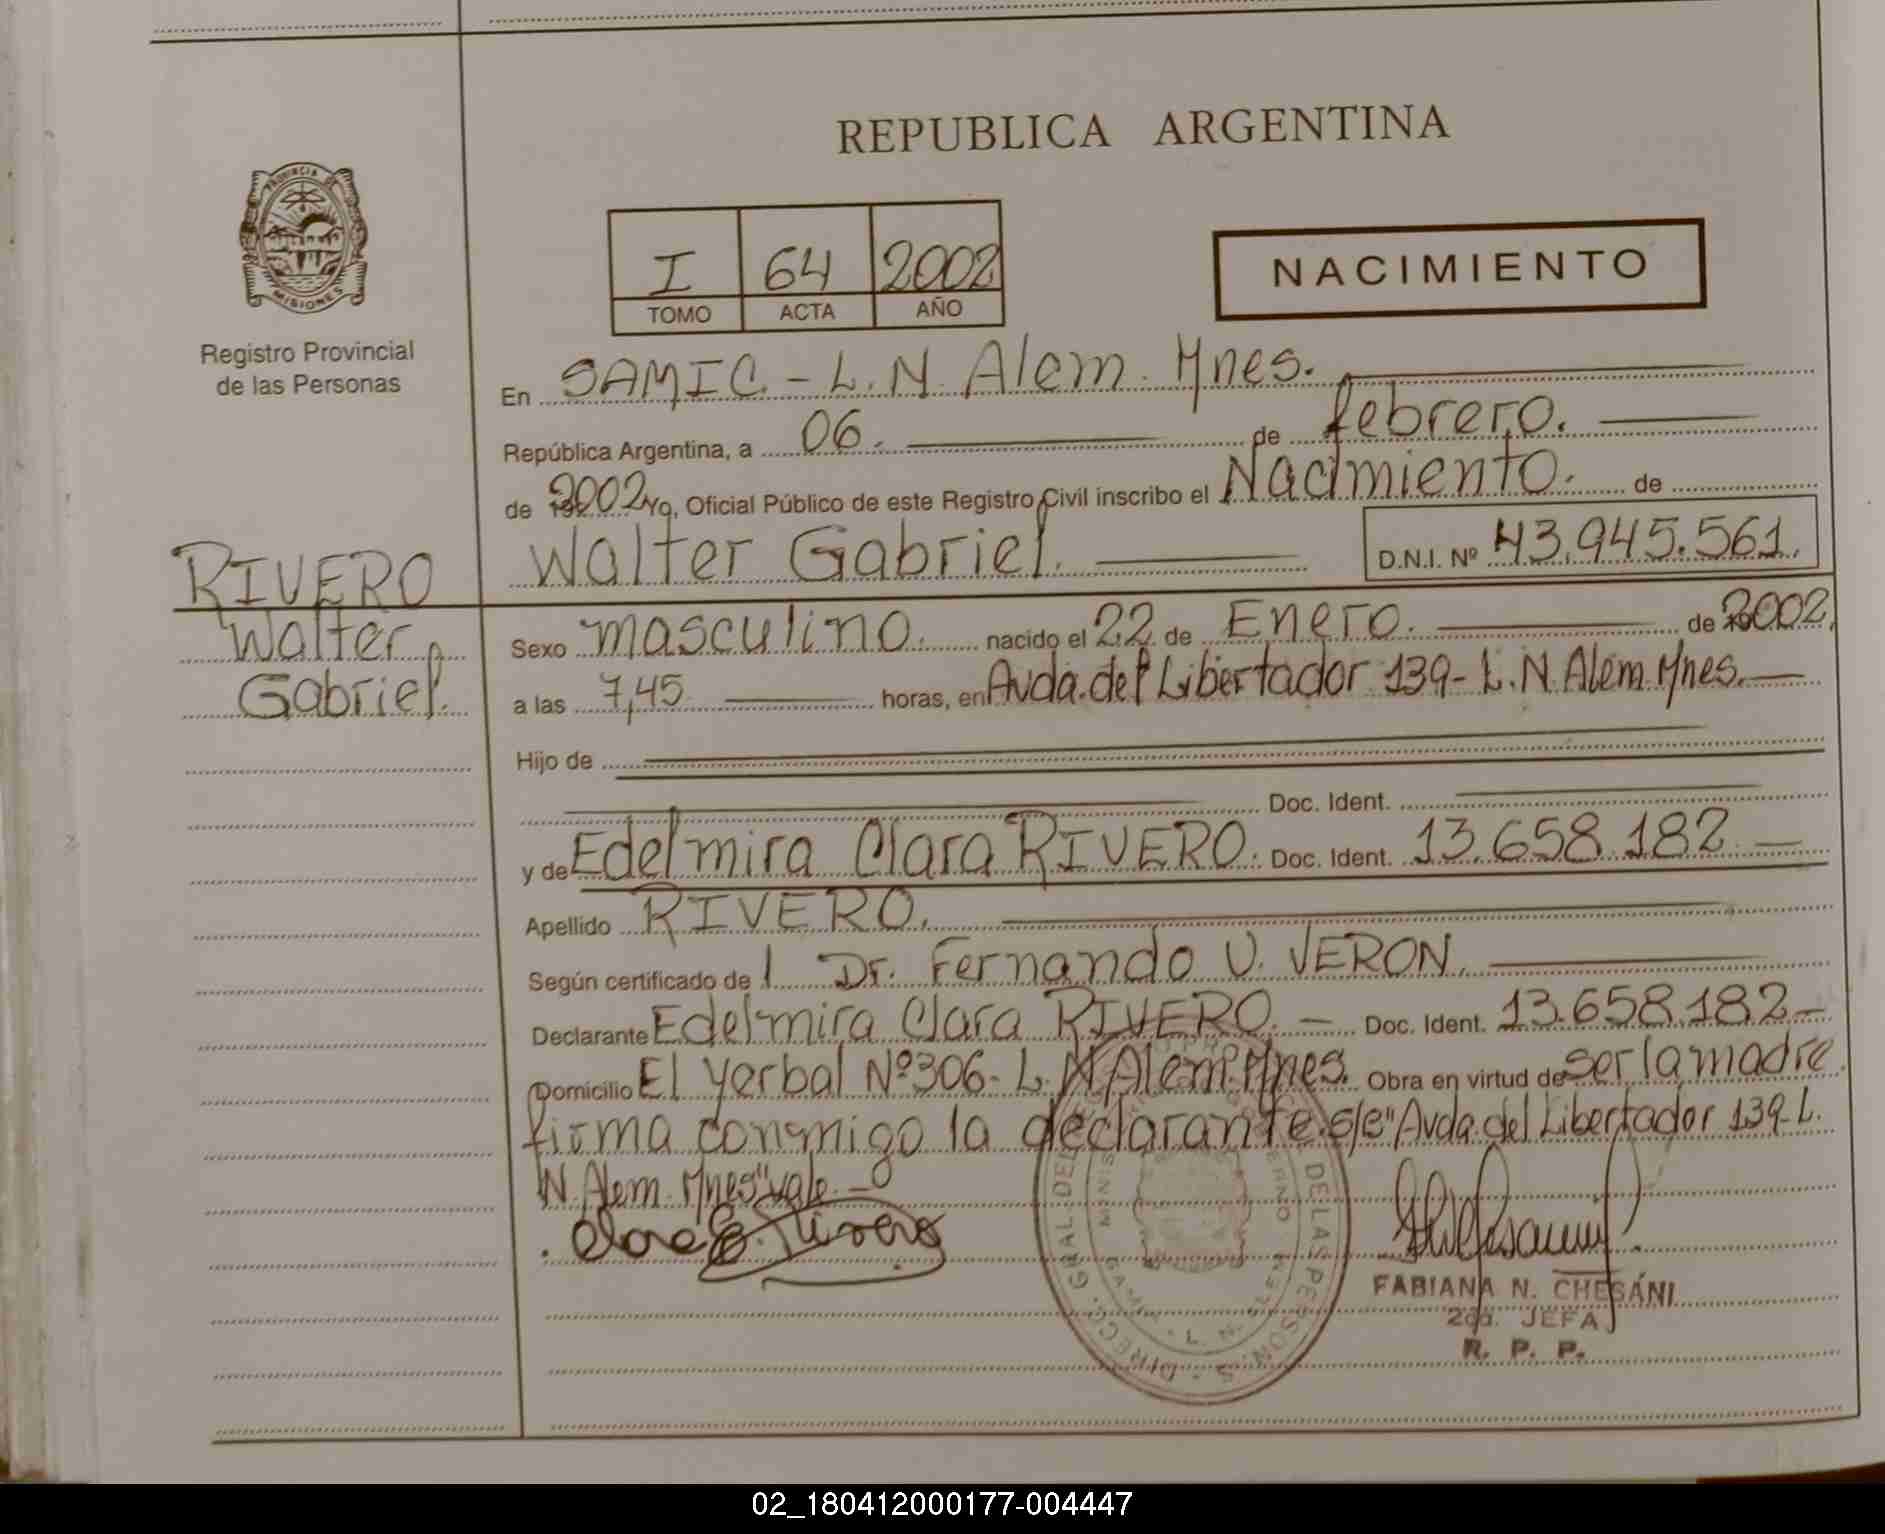 REPUBLICA ARGENTINA
PROVINCIA DE
MISIONES
Registro Provincial
de las Personas
I 64 2002
TOMO ACTA AÑO
NACIMIENTO
En SAMIC - L.N. Alem. Mnes.
República Argentina, a 06. de febrero.
de 2002 Yo, Oficial Público de este Registro Civil inscribo el Nacimiento. de
Walter Gabriel. D.N.I. Nº 43.945.561.
RIVERO
Walter
Gabriel.
Sexo masculino. nacido el 22 de Enero. de 2002,
a las 7,45 horas, en Avda. del Libertador 139- L.N. Alem. Mnes.
Hijo de
Doc. Ident.
y de Edelmira Clara RIVERO. Doc. Ident. 13.658.182.-
Apellido RIVERO.
Según certificado de l Dr. Fernando U. VERON.
Declarante Edelmira Clara RIVERO. - Doc. Ident. 13.658.182-
Domicilio El Yerbal Nº 306- L.N Alem. Mnes. Obra en virtud de ser la madre
firma conmigo la declarante. s/e "Avda. del Libertador 139-L.
N. Alem. Mnes" vale.-
DIRECC. GRAL. DEL DE LAS PERSONAS
L. N. ALEM
FABIANA N. CHESANI
2da. JEFA
R. P. P.
02_180412000177-004447